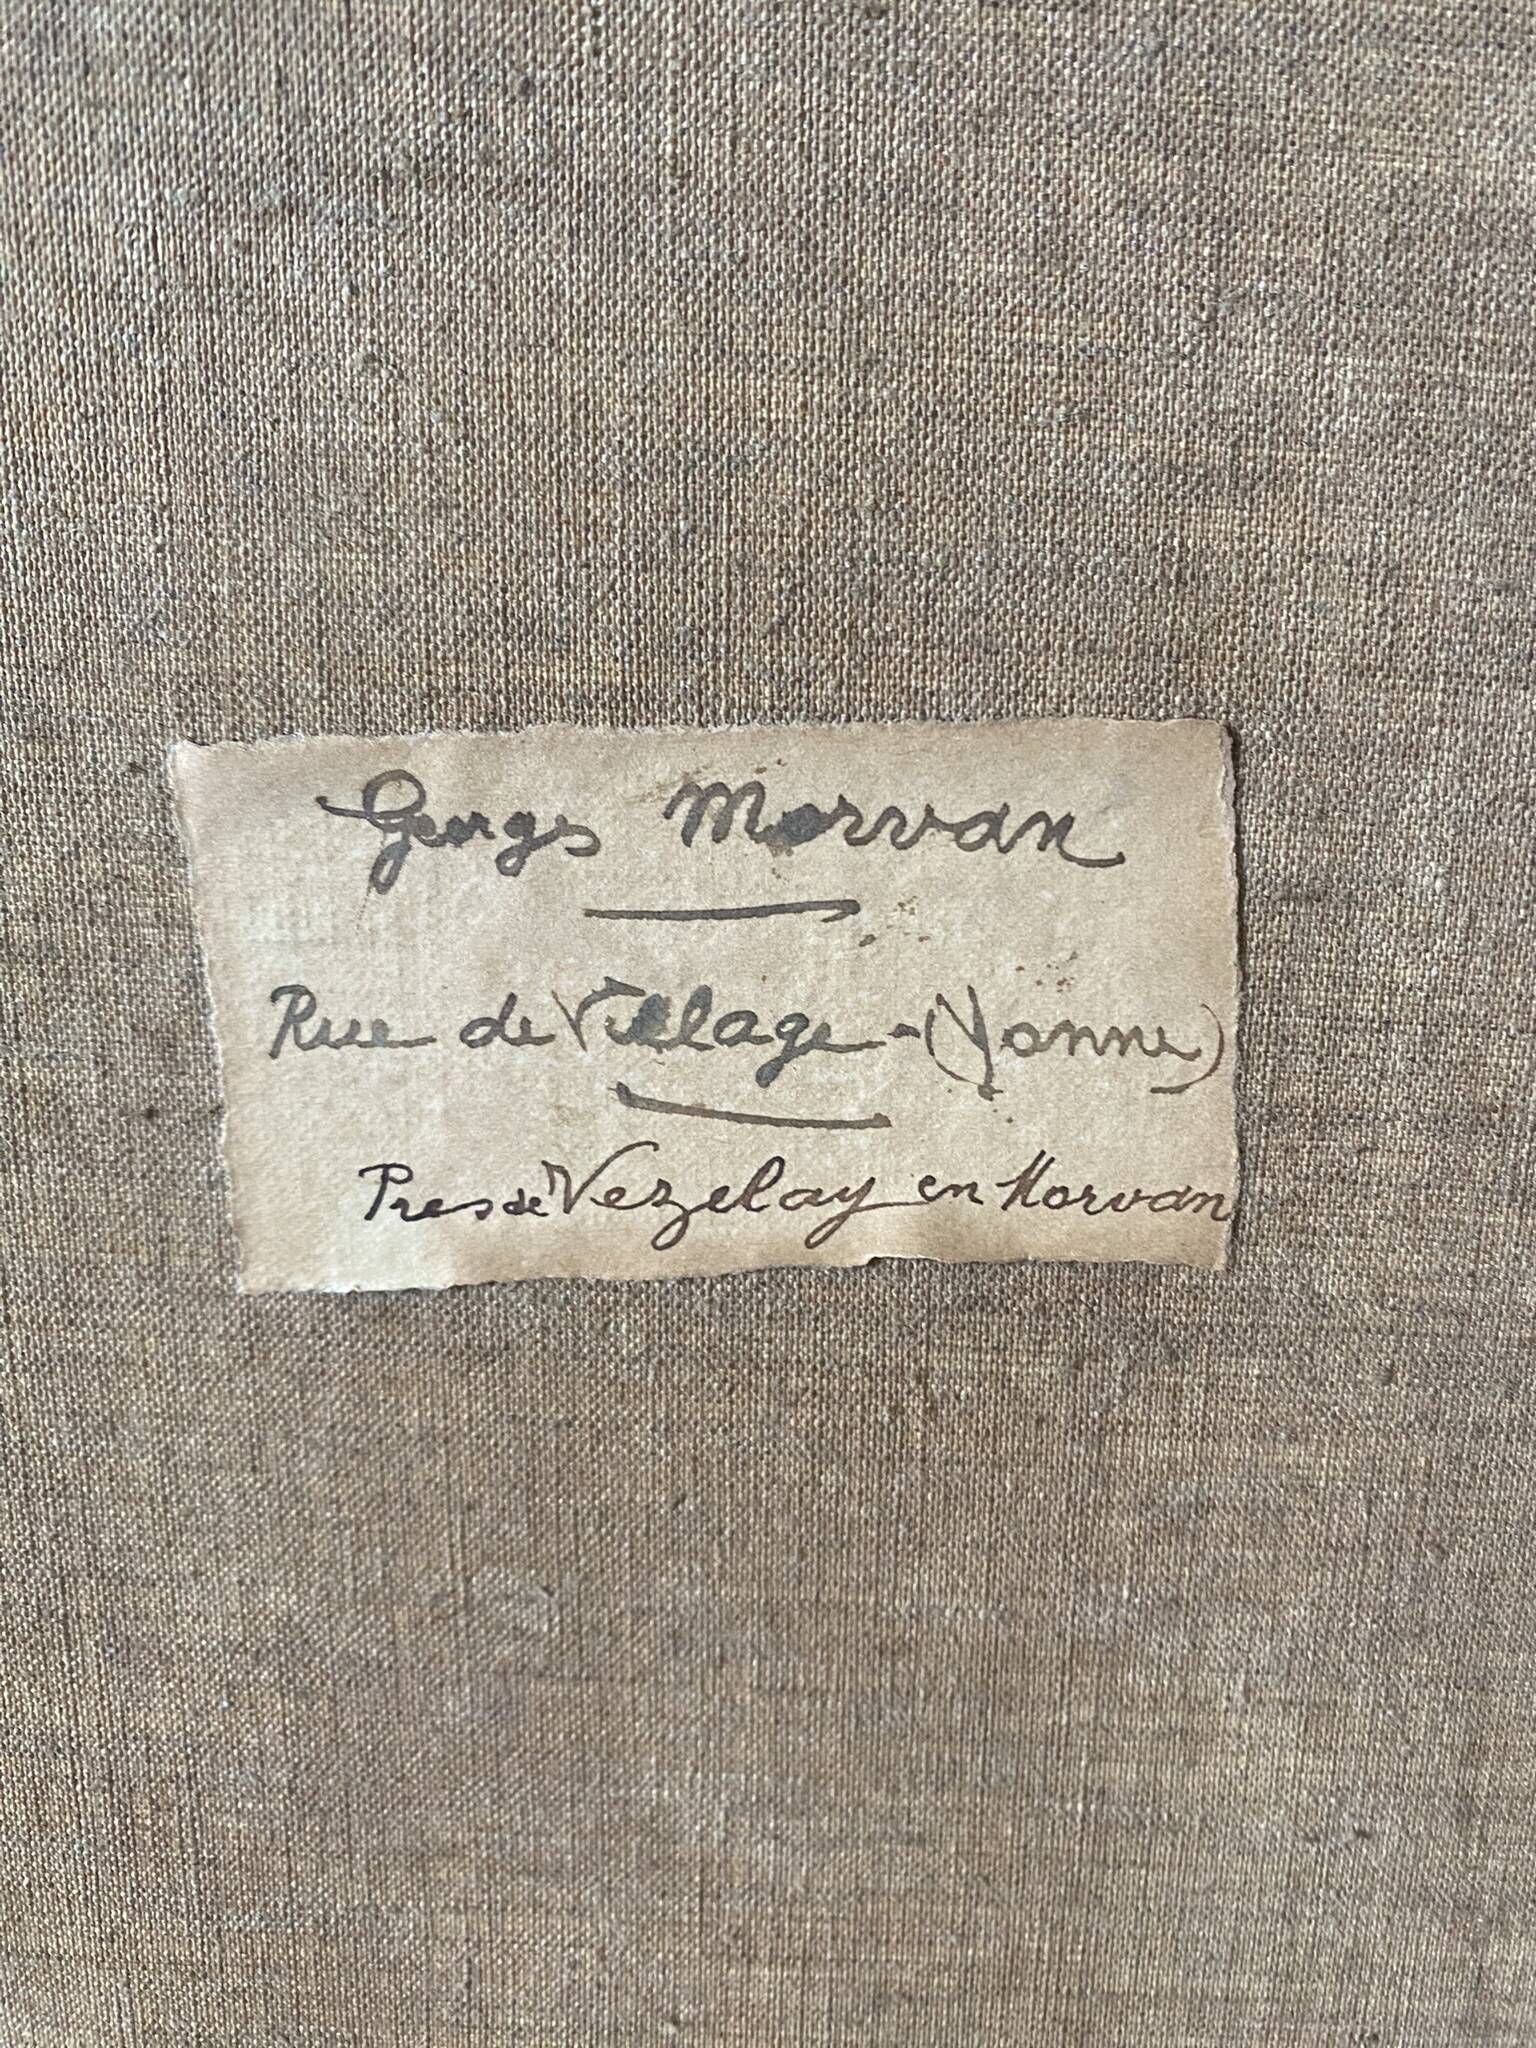 Georges Morvan
Rue de Village - (Yonne)
Pres de Vezelay en Morvan